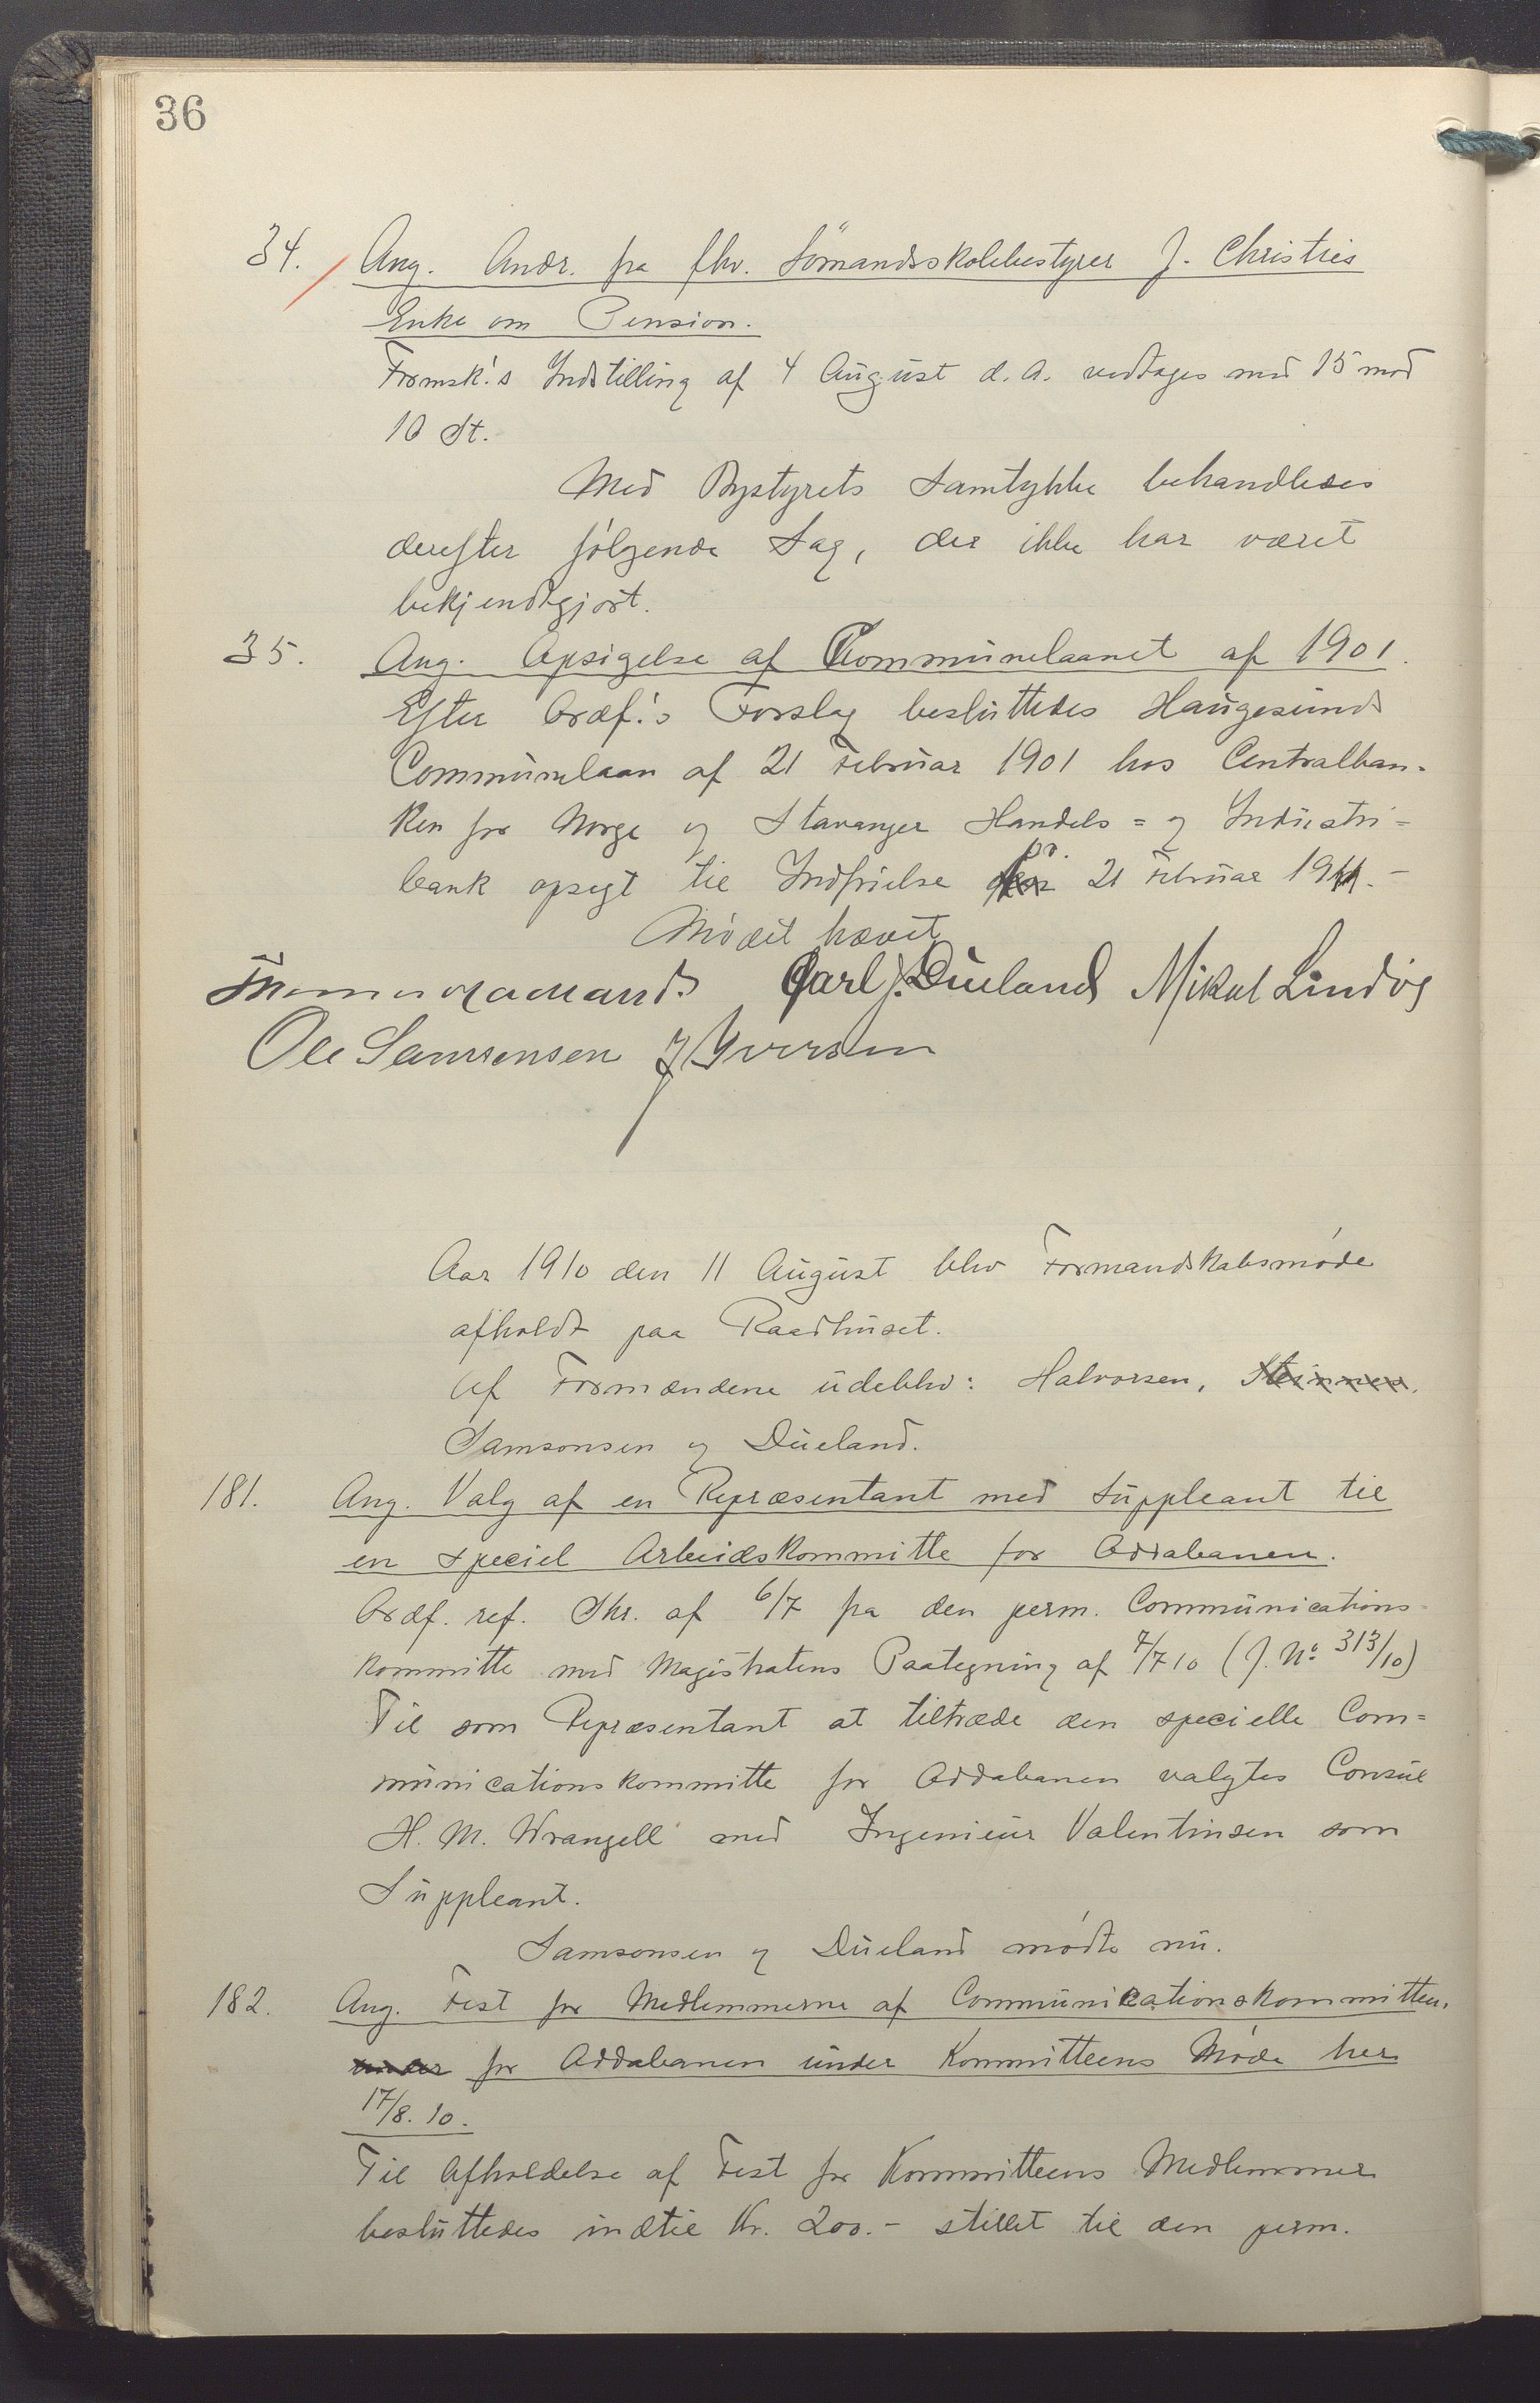 36
34. Ang. Andr. fra fhv. Sömandsskolebestyrer J. Christies
Enke om Pension.
Formsk.'s Indstilling af 4 August d. A. vedtages med 15 mod
10 St.
Med Bystyrets Samtykke behandledes
derefter følgende Sag, der ikke har været
bekjendtgjort.
35. Ang. Opsigelse af Kommunelaanet af 1901.
Efter Ordf.'s Forslag besluttedes Haugesunds
Communelaan af 21 Februar 1901 hos Centralban-
ken for Norge og Stavanger Handels= og Industri=
bank opsagt til Indfrielse pr. 21 Februar 1911.-
Mødet hævet
Carl J. Dueland Mikal Lindøe
Ole Samsonsen J Iversen
Aar 1910 den 11 August blev Formandskabsmøde
afholdt paa Raadhuset.
Af Formændene udeblev: Halvorsen, Steinnes,
Samsonsen og Dueland.
181. Ang. Valg af en Repræsentant med Suppleant til
en speciel Arbeidskommitte for Oddabanen.
Ordf. ref. Skr. af 6/7 fra den perm. Communications-
kommitte med Magistratens Paategning af 7/7 10 (J. No 313/10)
Til som Repræsentant at tiltræde den specielle Com=
munications kommitte for Oddabanen valgtes Consul
H. M. Wrangell med Ingeniеur Valentinsen som
Suppleant.
Samsonsen og Dueland mødte nu.
182. Ang. Fest for Medlemmerne af Communicationskommitteen,
under for Oddabanen under Kommitteens Møde her
17/8. 10.
Til Afholdelse af Fest for Kommitteens Medlemmer
besluttedes indtil Kr. 200.- stillet til den perm.